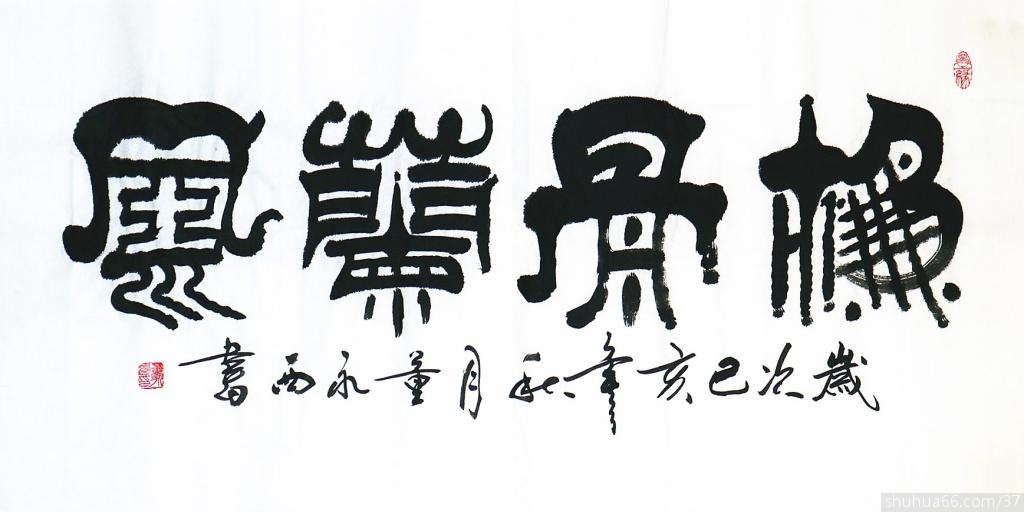 梅骨蘭風
歲次己亥年秋月董永西書
shuhua66.com/37